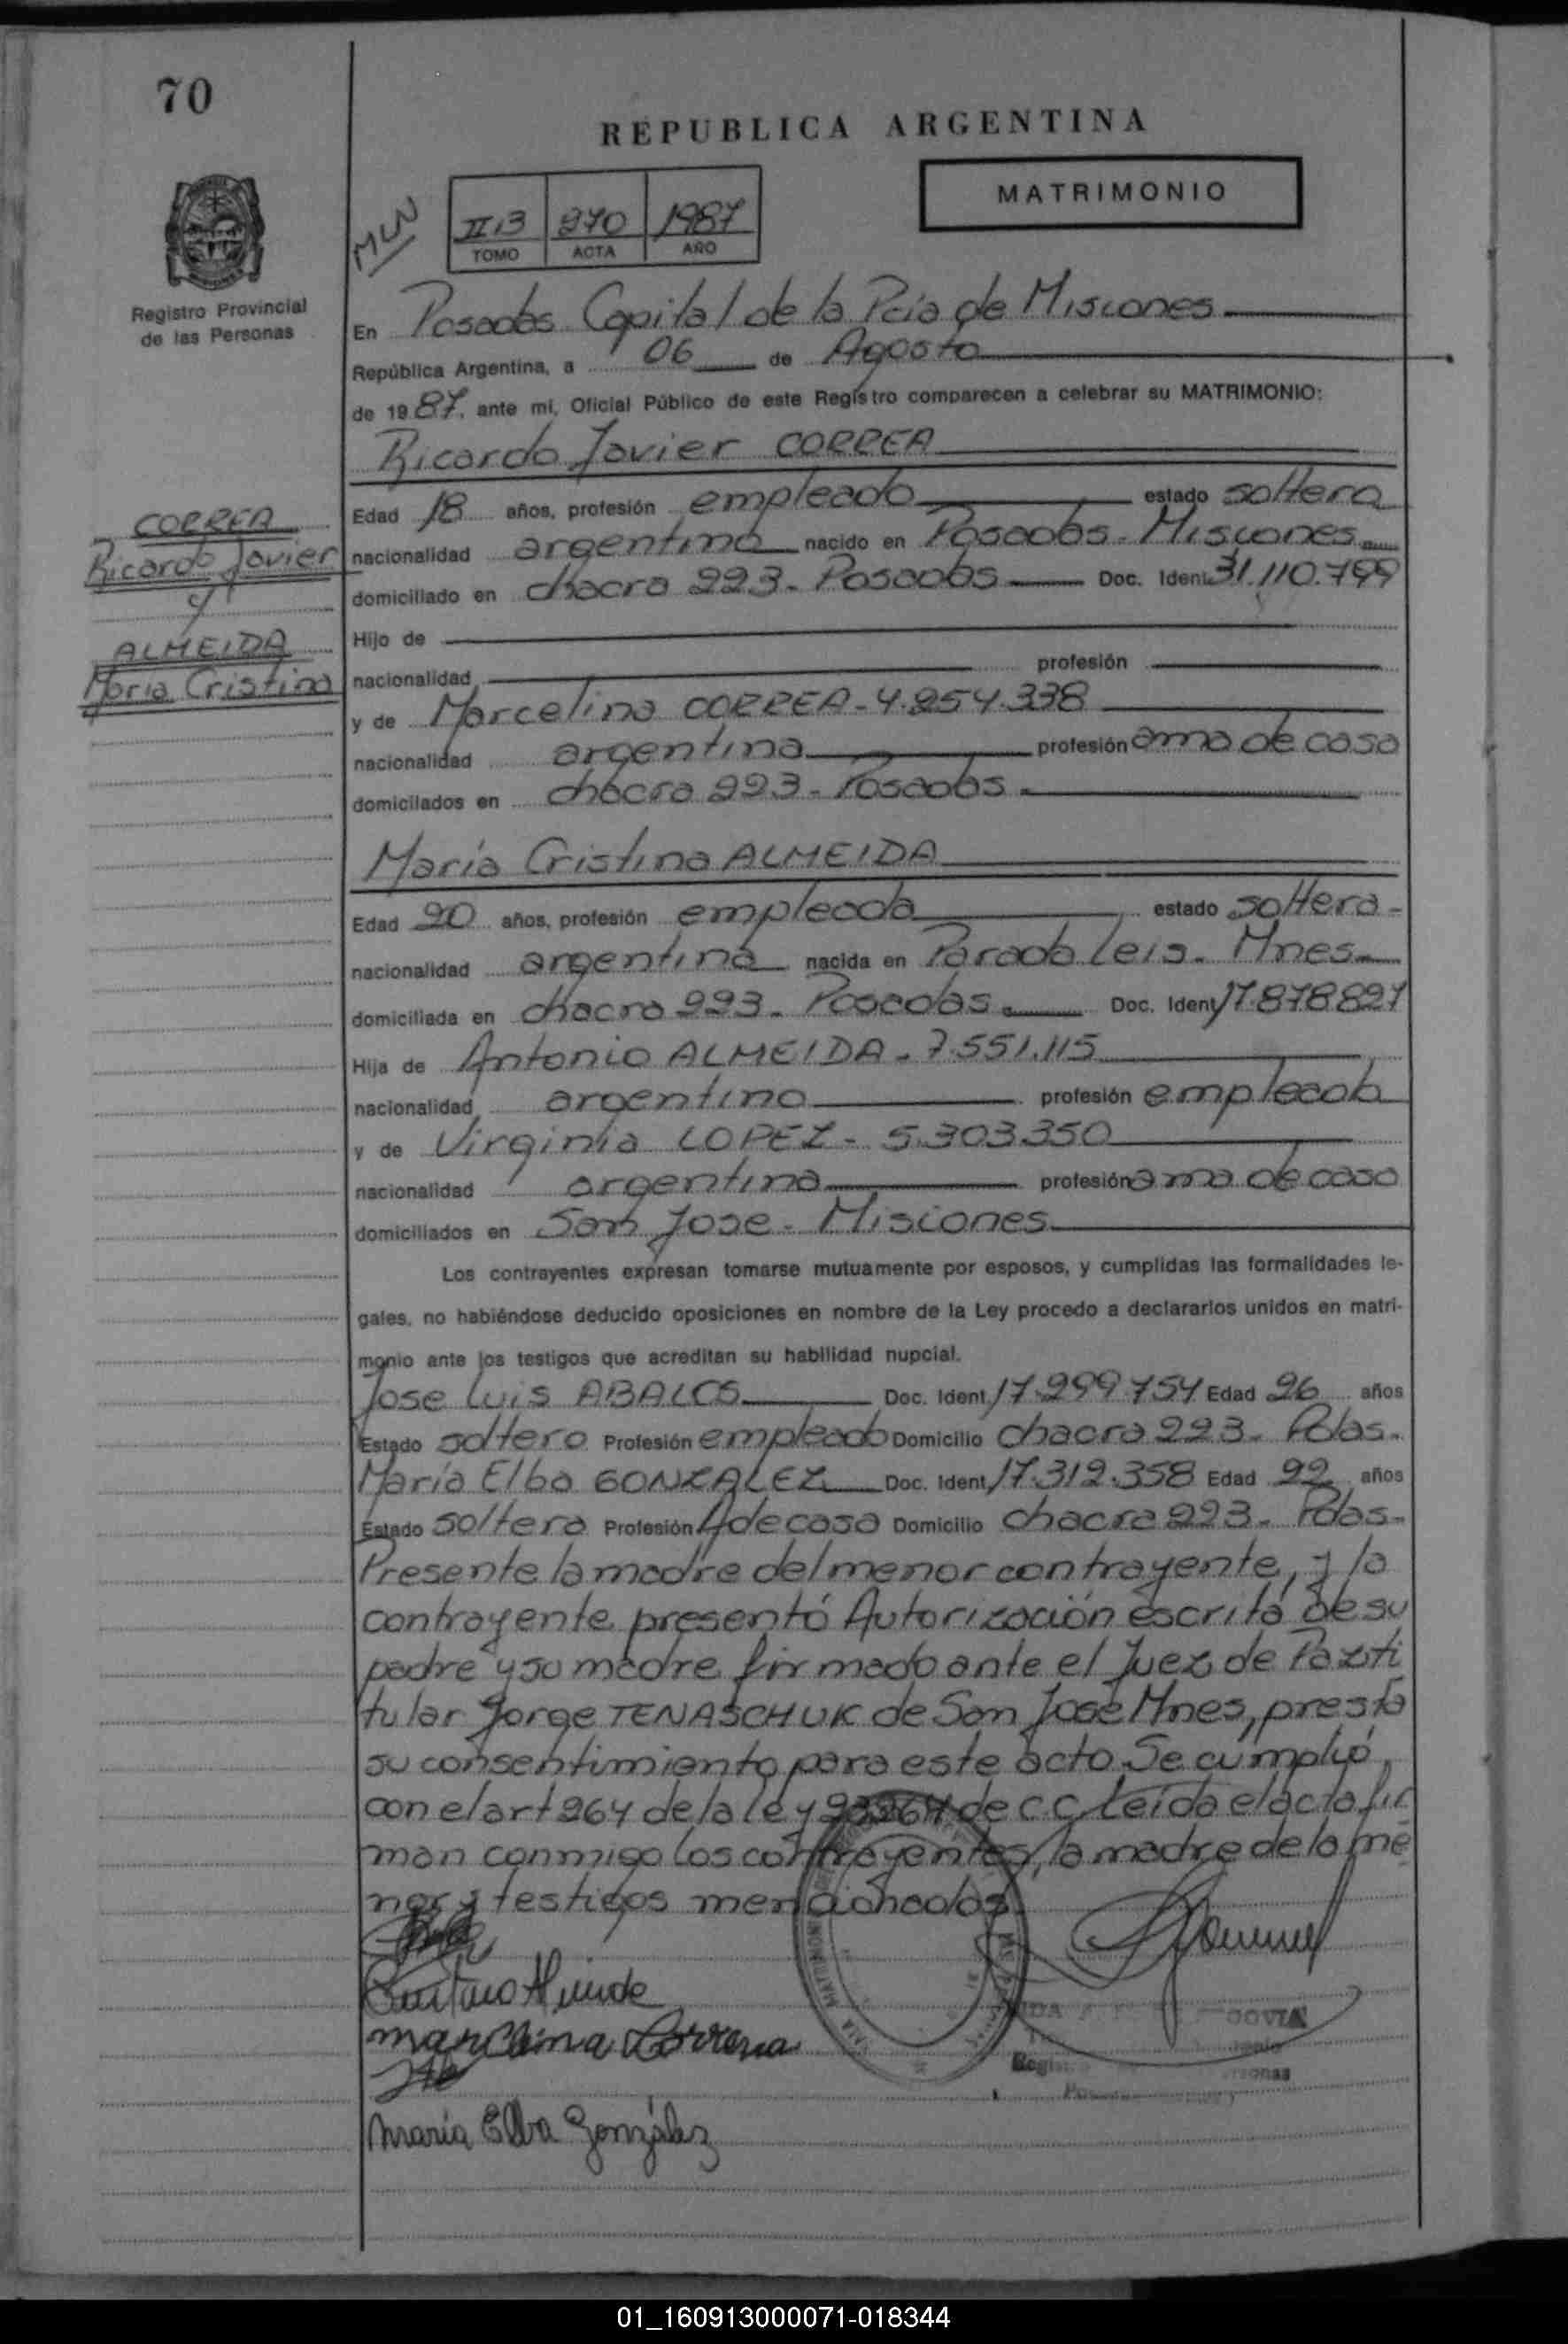 70
REPUBLICA ARGENTINA
MATRIMONIO
II.B 270 1987
TOMO ACTA AÑO
Registro Provincial
de las Personas
En Posadas Capital de la Pcia de Misiones
República Argentina, a 06 de Agosto
de 1987, ante mi, Oficial Público de este Registro comparecen a celebrar su MATRIMONIO:
Ricardo Javier CORREA
Edad 18 años, profesión empleado estado soltero
CORREA
Ricardo Javier
y
ALMEIDA
Maria Cristina
nacionalidad argentino nacido en Posadas - Misiones
domiciliado en chacra 223 - Posadas Doc. Ident. 31.110.799
Hijo de
nacionalidad profesión
y de Marcelina CORREA - 4.254.338
nacionalidad argentina profesión ama de casa
domicilados en chacra 223 - Posadas
María Cristina ALMEIDA
Edad 20 años, profesión empleada estado soltera -
nacionalidad argentina nacida en Parada Leis - Mnes
domiciliada en chacra 223 - Posadas Doc. Ident 17.878827
Hija de Antonio ALMEIDA - 7.551.115
nacionalidad argentino profesión empleado
y de Virginia LOPEZ - 5.303.350
nacionalidad argentina profesión ama de casa
domiciliados en San Jose - Misiones
Los contrayentes expresan tomarse mutuamente por esposos, y cumplidas las formalidades le-
gales, no habiéndose deducido oposiciones en nombre de la Ley procedo a declararlos unidos en matri-
monio ante los testigos que acreditan su habilidad nupcial.
Jose Luis ABALOS Doc. Ident. 17.299.754 Edad 26 años
Estado soltero Profesión empleado Domicilio chacra 223 - Pdas.
María Elba GONZALEZ Doc. Ident. 17.312.358 Edad 22 años
Estado soltera Profesión A de casa Domicilio chacra 223 - Pdas -
Presente la madre del menor contrayente, y la
contrayente presentó Autorización escrita de su
padre y su madre firmado ante el Juez de Paz ti
tular Jorge TENASCHUK de San José Mnes, presta
su consentimiento para este acto. Se cumplió
con el art 264 de la ley 23264 de C.C. Leída el acta fir
man conmigo los contrayentes, la madre de la me
nor y testigos mencionados
Marclina Correa
María Elba González
01_160913000071-018344